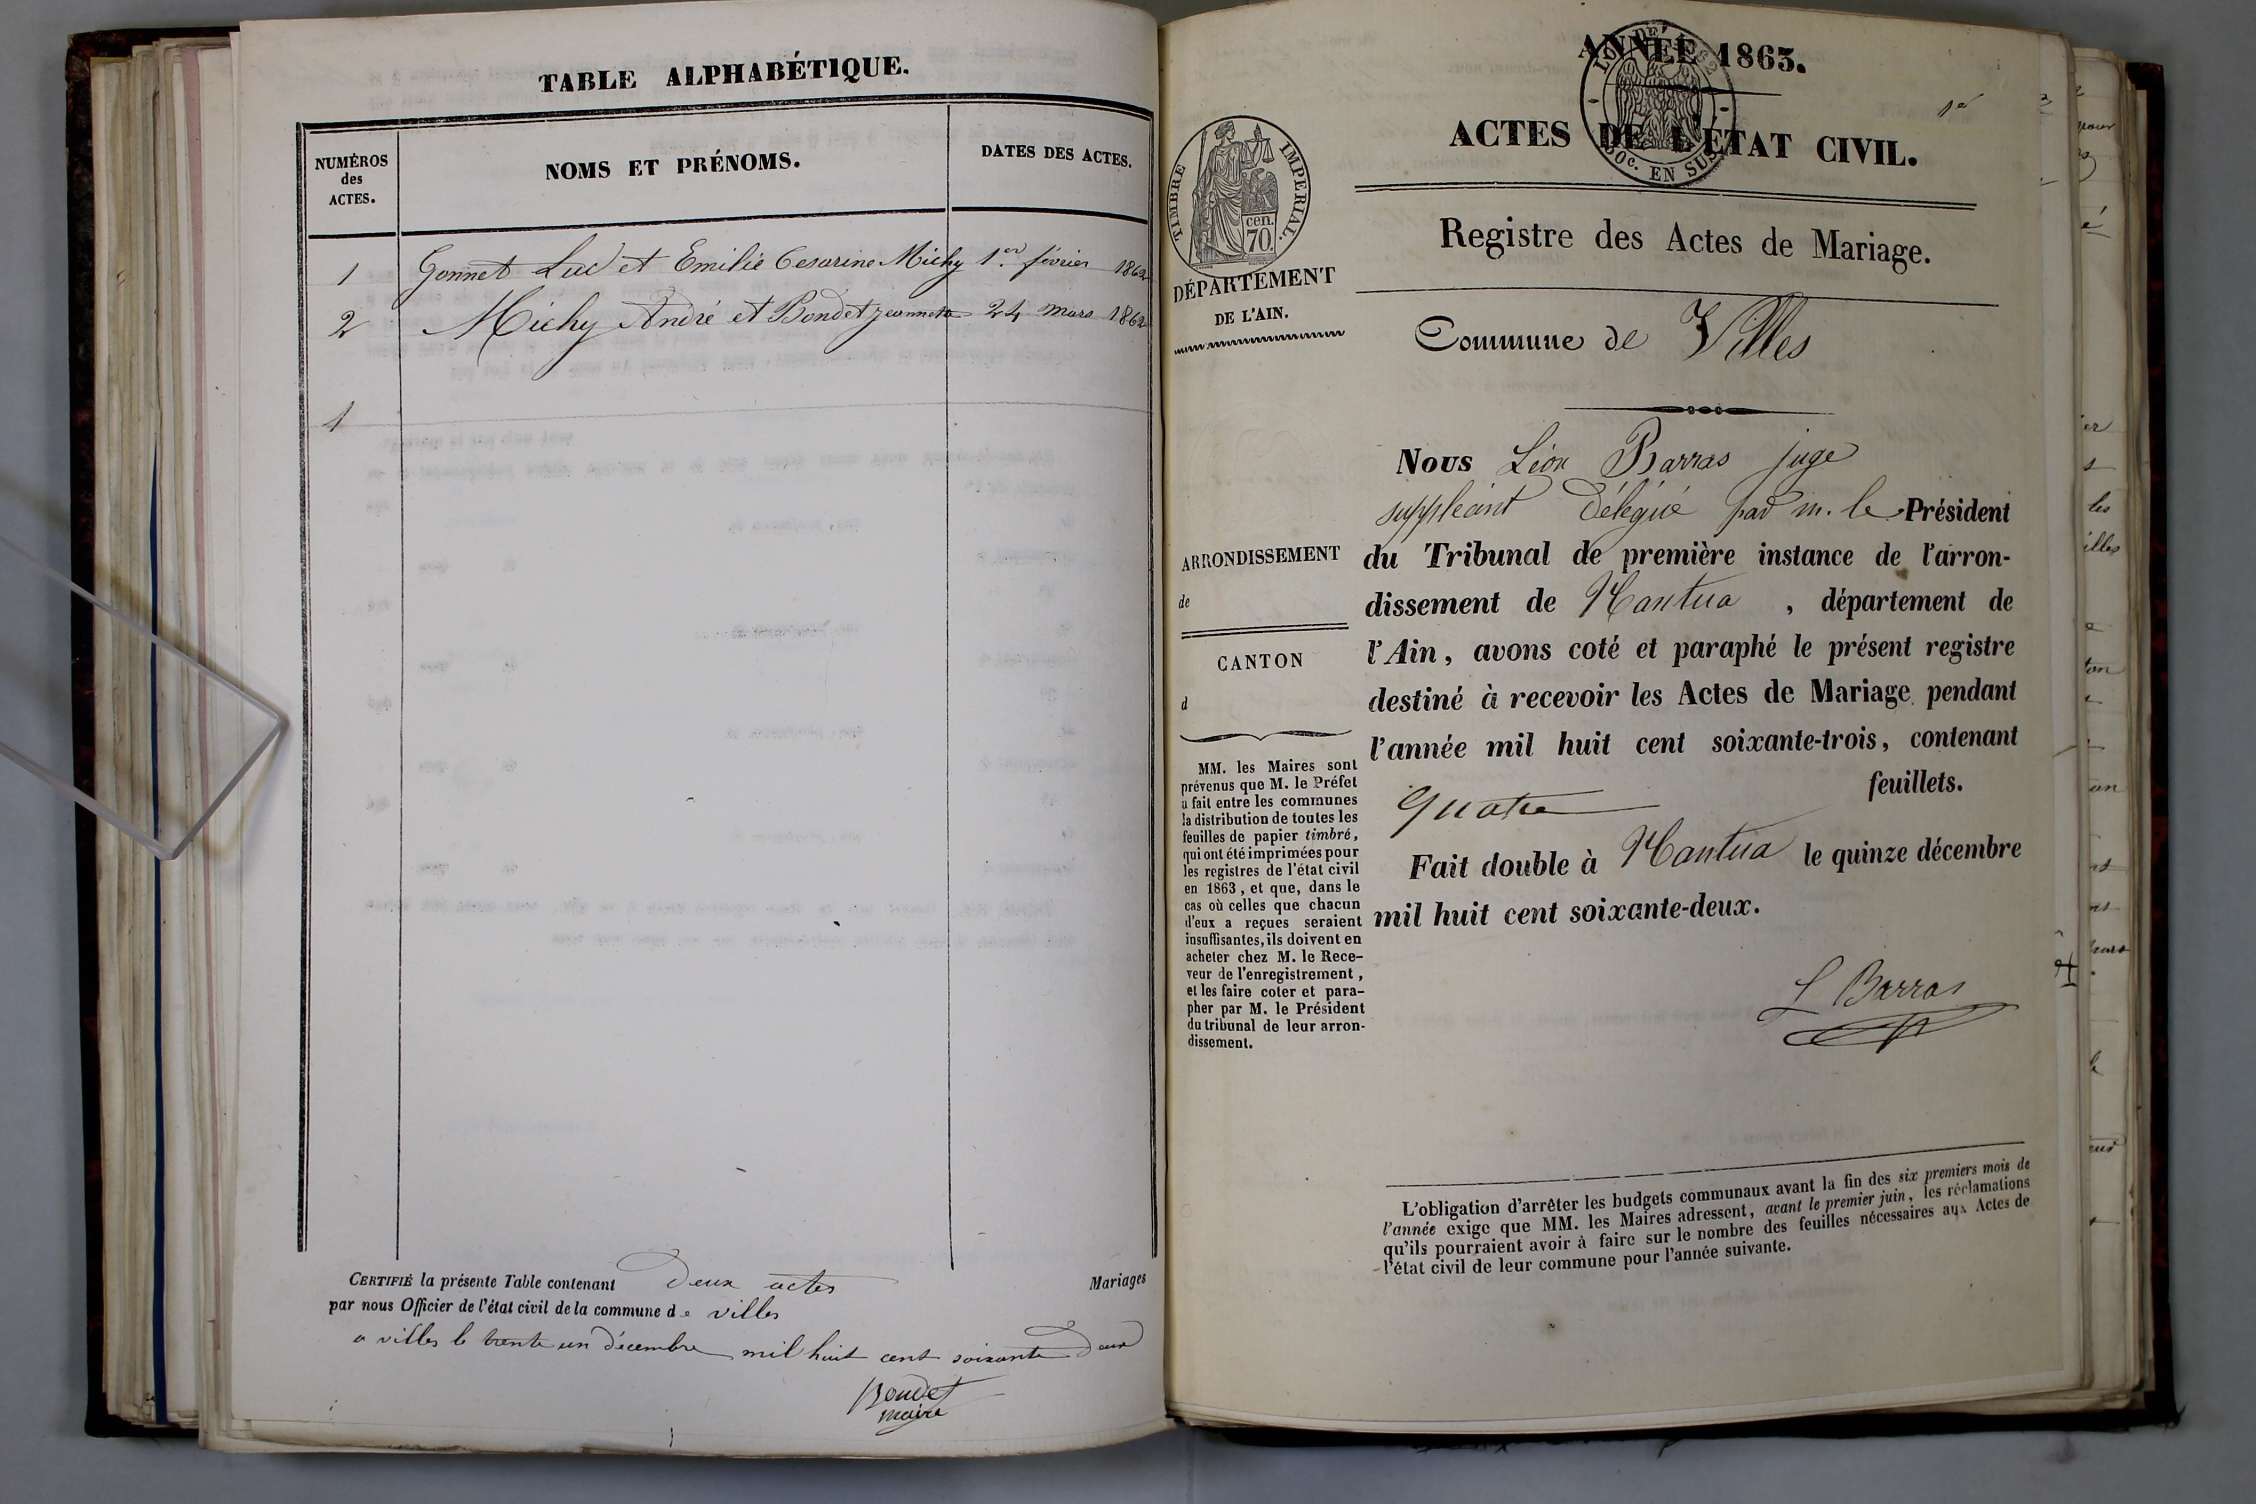 TABLE ALPHABÉTIQUE.
NUMÉROS
des
ACTES.
NOMS ET PRÉNOMS.
DATES DES ACTES.
1 Gonnet Luc et Emilie Cesarine Michy 1.er février 1862
2 Michy André et Bondet Jeannette 24 mars 1862
1
CERTIFIÉ la présente Table contenant deux actes Mariages
par nous Officier de l'état civil de la commune de villes
a villes le trente un décembre mil huit cent soixante deux
Bondet
maire
ANNÉE 1863.
LOI DE 1862
10c. EN SUS
1er
ACTES DE L'ÉTAT CIVIL.
TIMBRE IMPERIAL.
cen.
70.
Registre des Actes de Mariage.
DÉPARTEMENT
DE L'AIN.
Commune de Villes
Nous Léon Barras juge
suppléant délégué par m. le Président
du Tribunal de première instance de l'arron-
dissement de Nantua , département de
l'Ain, avons coté et paraphé le présent registre
destiné à recevoir les Actes de Mariage pendant
l'année mil huit cent soixante-trois, contenant
quatre feuillets.
Fait double à Nantua le quinze décembre
mil huit cent soixante-deux.
L Barras
ARRONDISSEMENT
de
CANTON
d
MM. les Maires sont
prévenus que M. le Préfet
a fait entre les communes
la distribution de toutes les
feuilles de papier timbré,
qui ont été imprimées pour
les registres de l'état civil
en 1863, et que, dans le
cas où celles que chacun
d'eux a reçues seraient
insuffisantes, ils doivent en
acheter chez M. le Rece-
veur de l'enregistrement,
et les faire coter et para-
pher par M. le Président
du tribunal de leur arron-
dissement.
L'obligation d'arrêter les budgets communaux avant la fin des six premiers mois de
l'année exige que MM. les Maires adressent, avant le premier juin, les réclamations
qu'ils pourraient avoir à faire sur le nombre des feuilles nécessaires aux Actes de
l'état civil de leur commune pour l'année suivante.